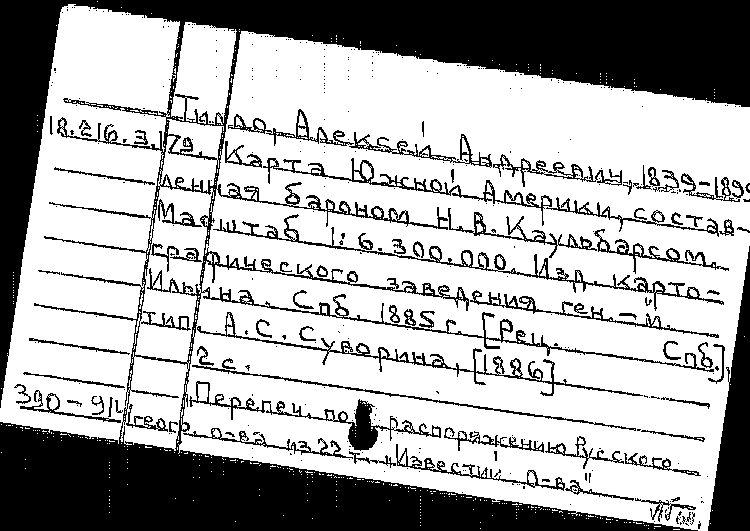 Тилло, Алексей Андреевич, 1839-1899
18.216.3.179. Карта Южной Америки, состав-
ленная бароном Н.В. Каульбарсом.
Масштаб 1:6.300.000. Изд. карто-
графического заведения ген.-м.
Ильина. Спб. 1885 г. [Рец. Спб.],
тип. А.С. Суворина, [1886].
2 с.
Перепеч. по распоряжению Русского
390-91 геогр. о-ва из 22 т. „Известий о-ва"